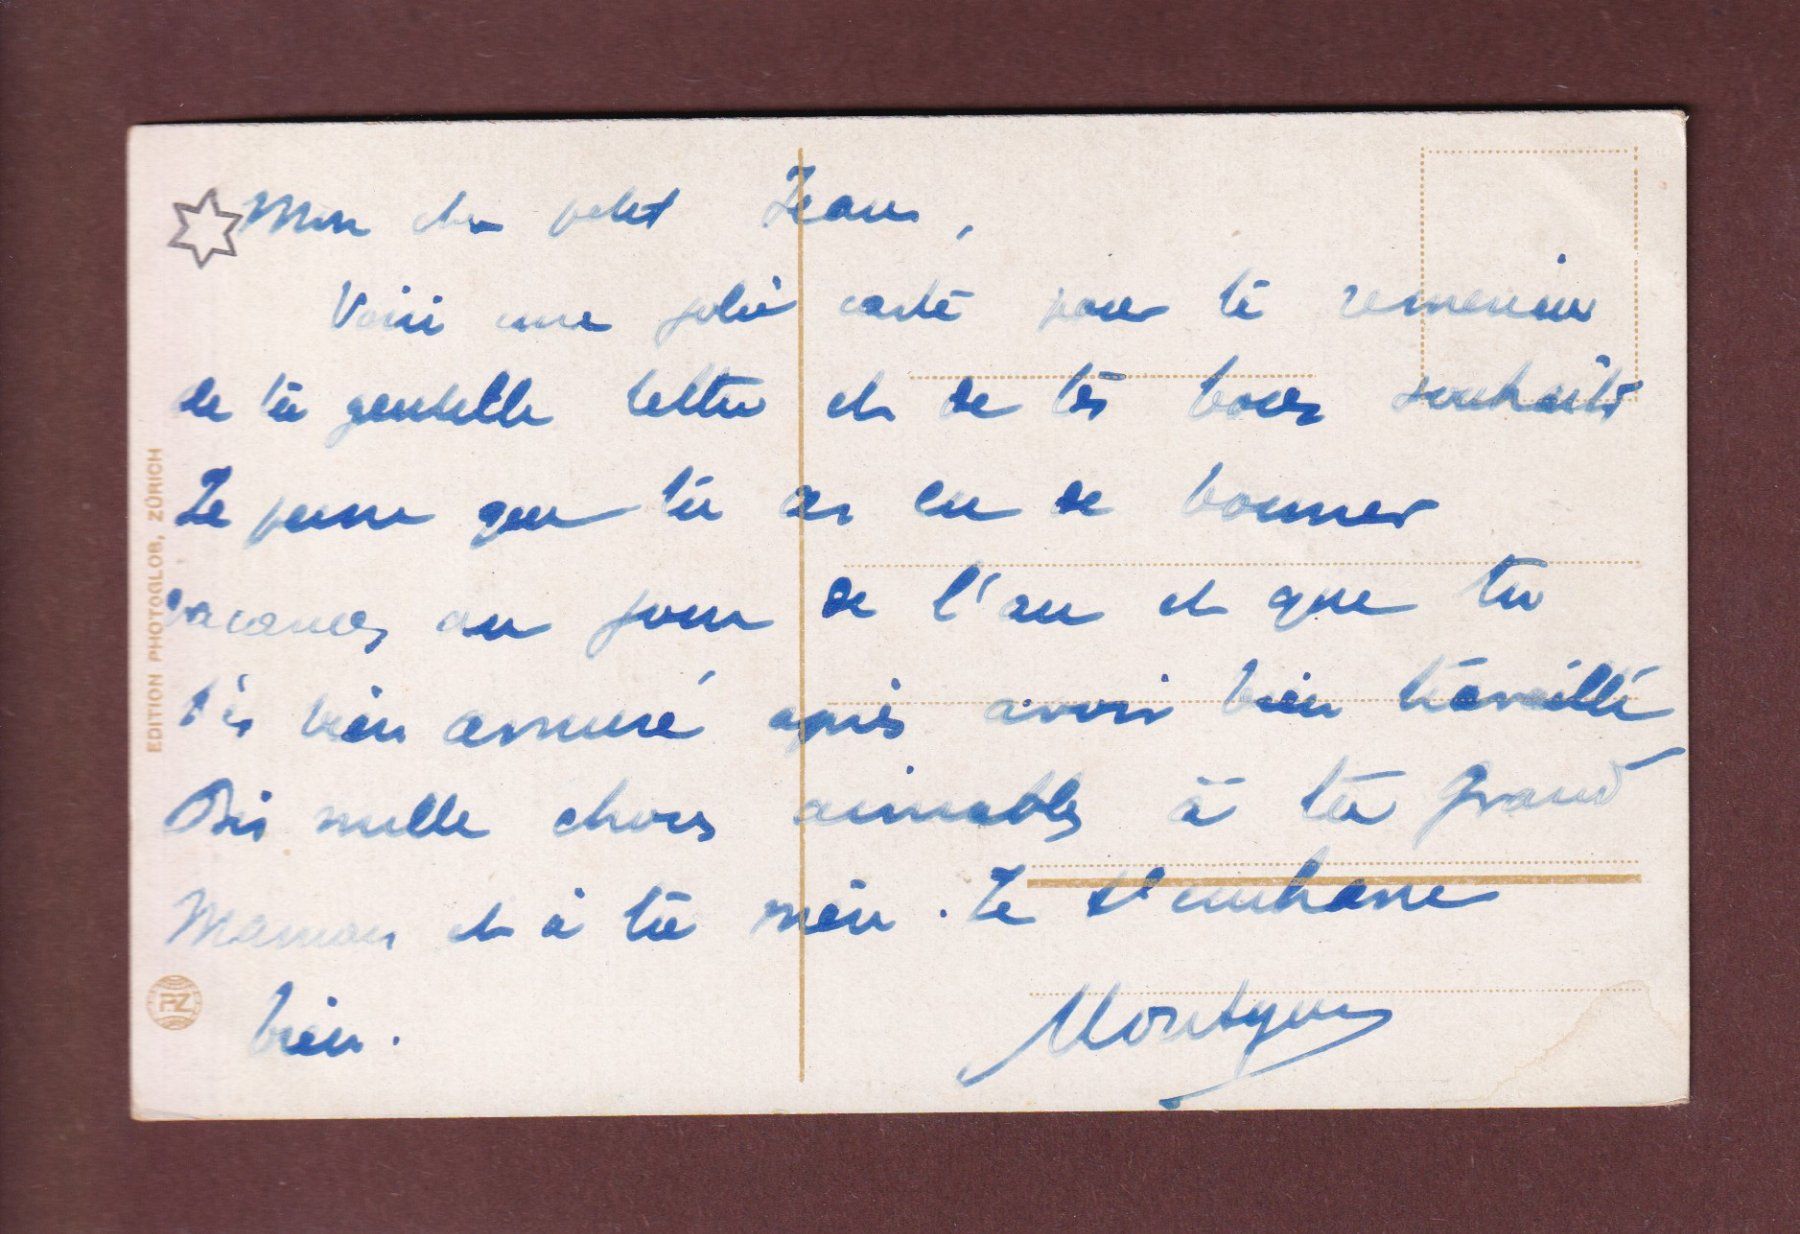 Mon cher petit Jean,
Voici une jolie carte pour te remercier
de ta gentille lettre et de tes bons souhaits
Je pense que tu as eu de bonnes
vacances au jour de l'an et que tu
t'es bien amusé après avoir bien travaillé
Dis mille choses aimables à ta Grand
Maman et à ta mère. Je t'embrasse
bien.
EDITION PHOTOGLOB, ZÜRICH
PZ